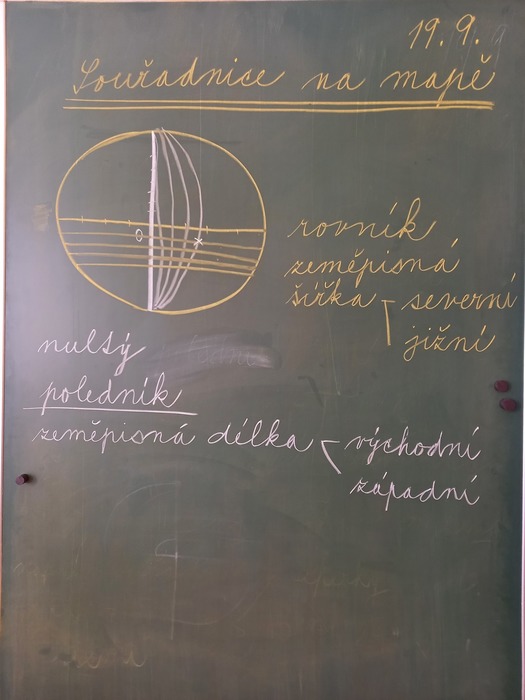 19. 9.
Souřadnice na mapě
0
rovník
zeměpisná
šířka severní
jižní
nultý
poledník
zeměpisná délka východní
západní